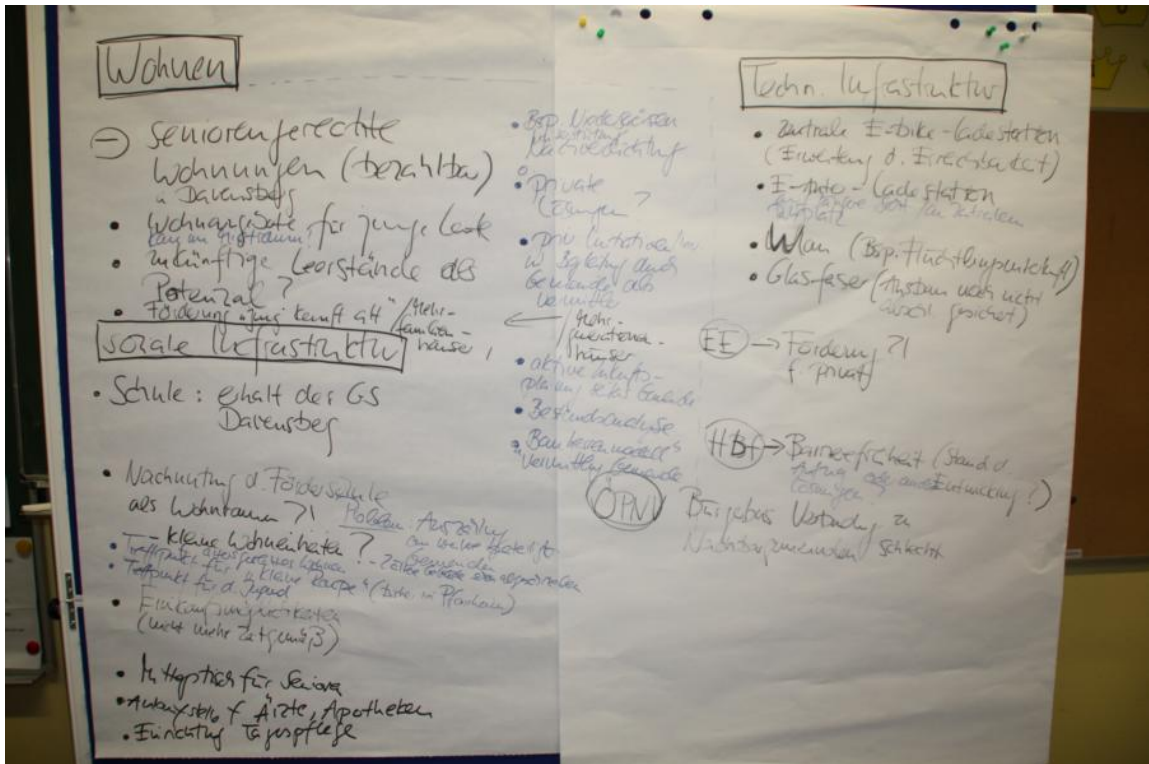 Wohnen
⊖ Seniorengerechte
Wohnungen (bezahlbar)
in Davensberg
• Wohnangebote für junge Leute
• zukünftige Leerstände als
Potenzial?
• Förderung "jung kauft alt" / Mehr-
familien-
häuser,
soziale Infrastruktur
• Schule: erhalt der GS
Davensberg
• Nachnutzung d. Förderschule
als Wohnraum?! Problem
- kleine Wohneinheiten?
• Treffpunkt für "kleine
• Treffpunkt für d. Jugend
• Einkaufsmöglichkeiten
(nicht mehr zeitgemäß)
• Mittagstisch für Senioren
• f. Ärzte, Apotheken
• Einrichtung Tagespflege
• Bsp.
Nachverdichtung
• private
Lösungen?
• priv. Initiativen
in Begleitung durch
Gemeinde als
Vermittler
/ Mehr-
generationen-
häuser
• aktive
planung seitens Gemeinde
• Bestandsanalyse
• "Bauherrenmodell"
Vermittlung Gemeinde
Techn. Infrastruktur
• zentrale E-bike-Ladestation
(Erweiterung d. Erreichbarkeit)
• E-Auto-Ladestation
• Wlan (Bsp. Flüchtlingsunterkunft)
• Glasfaser (Ausbau noch nicht
gesichert)
EE → Förderung?!
f. privat
HBf → Barrierefreiheit (Stand d.
Entwicklung?)
Lösungen?
ÖPNV Bürgerbus Verbindung zu
Nachbargemeinden schlecht